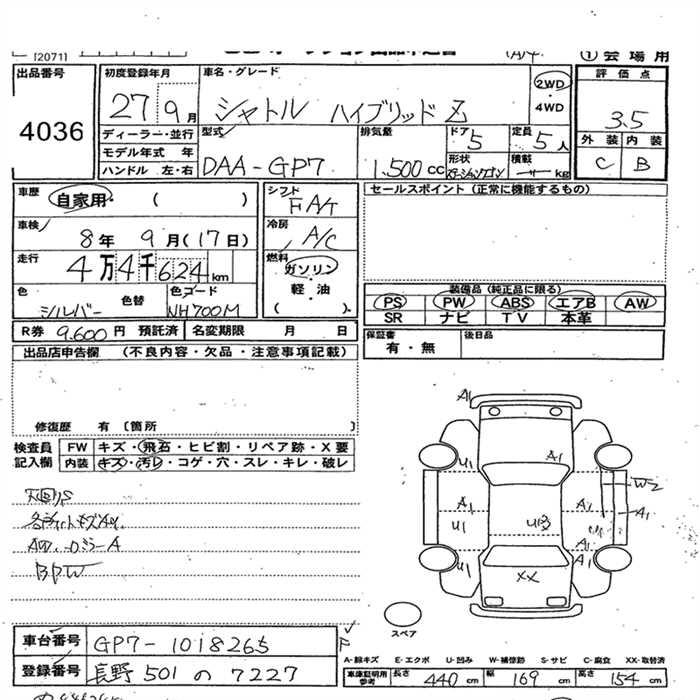 [2071]
① 会場用
出品番号
4036
初度登録年月
27 9月
車名・グレード
シャトル ハイブリッド Z
2WD
・
4WD
評価点
3.5
外装 内装
C B
ディーラー・並行
モデル年式 年
ハンドル 左・右
型式
DAA-GP7
排気量
1.500cc
ドア
5
定員
5人
形状
ステーションワゴン
積載
kg
車歴
自家用 ( )
車検
8年 9月(17日)
走行
4万4千624km
色
シルバー
色替
色コード
NH700M
シフト
FAT
冷房
A/C
燃料
ガソリン
軽・油
( )
セールスポイント (正常に機能するもの)
装備品 (純正品に限る)
PS PW ABS エアB AW
SR ナビ TV 本革
R券 9.600円 預託済
名変期限 月 日
保証書
有・無
後日品
出品店申告欄 (不良内容・欠品・注意事項記載)
修復歴 有 〔箇所 〕
検査員
記入欄
FW キズ・飛石・ヒビ割・リペア跡・X要
内装 キズ・汚レ・コゲ・穴・スレ・キレ・破レ
BPW
A1
U1 A1
W2
A1 A1
U1 U3
A1
A1
U1 A1
XX
スペア
車台番号 GP7-1018265
登録番号 長野 501 の 7227
A-線キズ E-エクボ U-凹み W-補修跡 S-サビ C-腐食 XX-取替済
車庫証明用
参考
長さ 440cm 幅 169cm 高さ 154cm